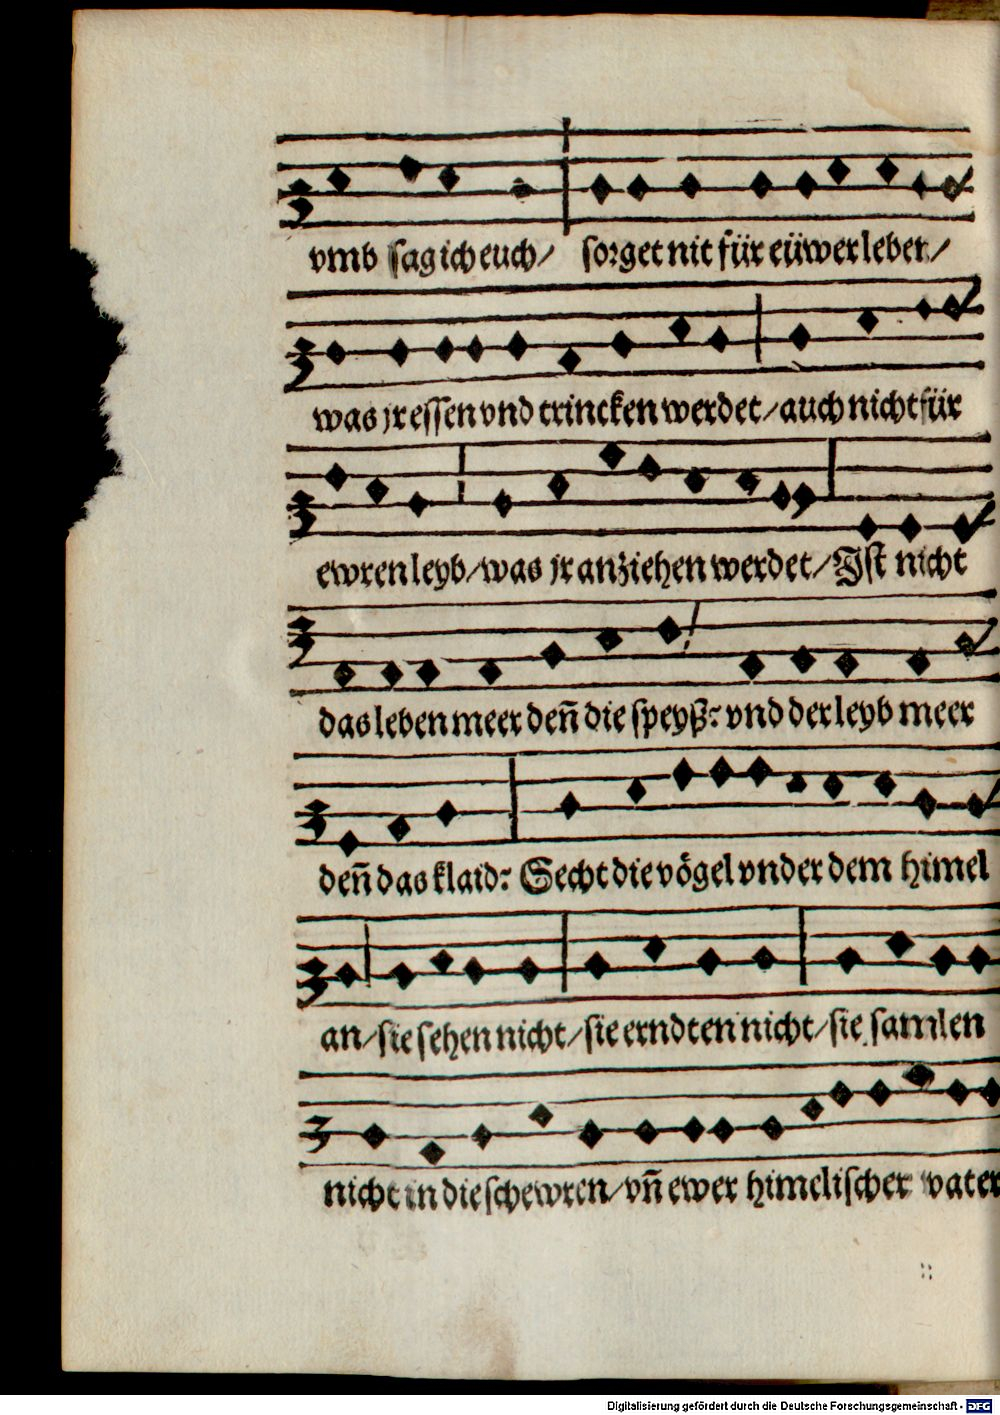 vmb sag ich euch/ sorget nit für eüwer leben/
was jr essen vnd trincken werdet/auch nicht für
ewren leyb/was jr anziehen werdet/Ist nicht
das leben meer deñ die speyß: vnd der leyb meer
deñ das klaid: Secht die vögel vnder dem himel
an/sie sehen nicht/sie erndten nicht/sie samlen
nicht in die schewren/vñ ewer himelischer vater
Digitalisierung gefördert durch die Deutsche Forschungsgemeinschaft - DFG